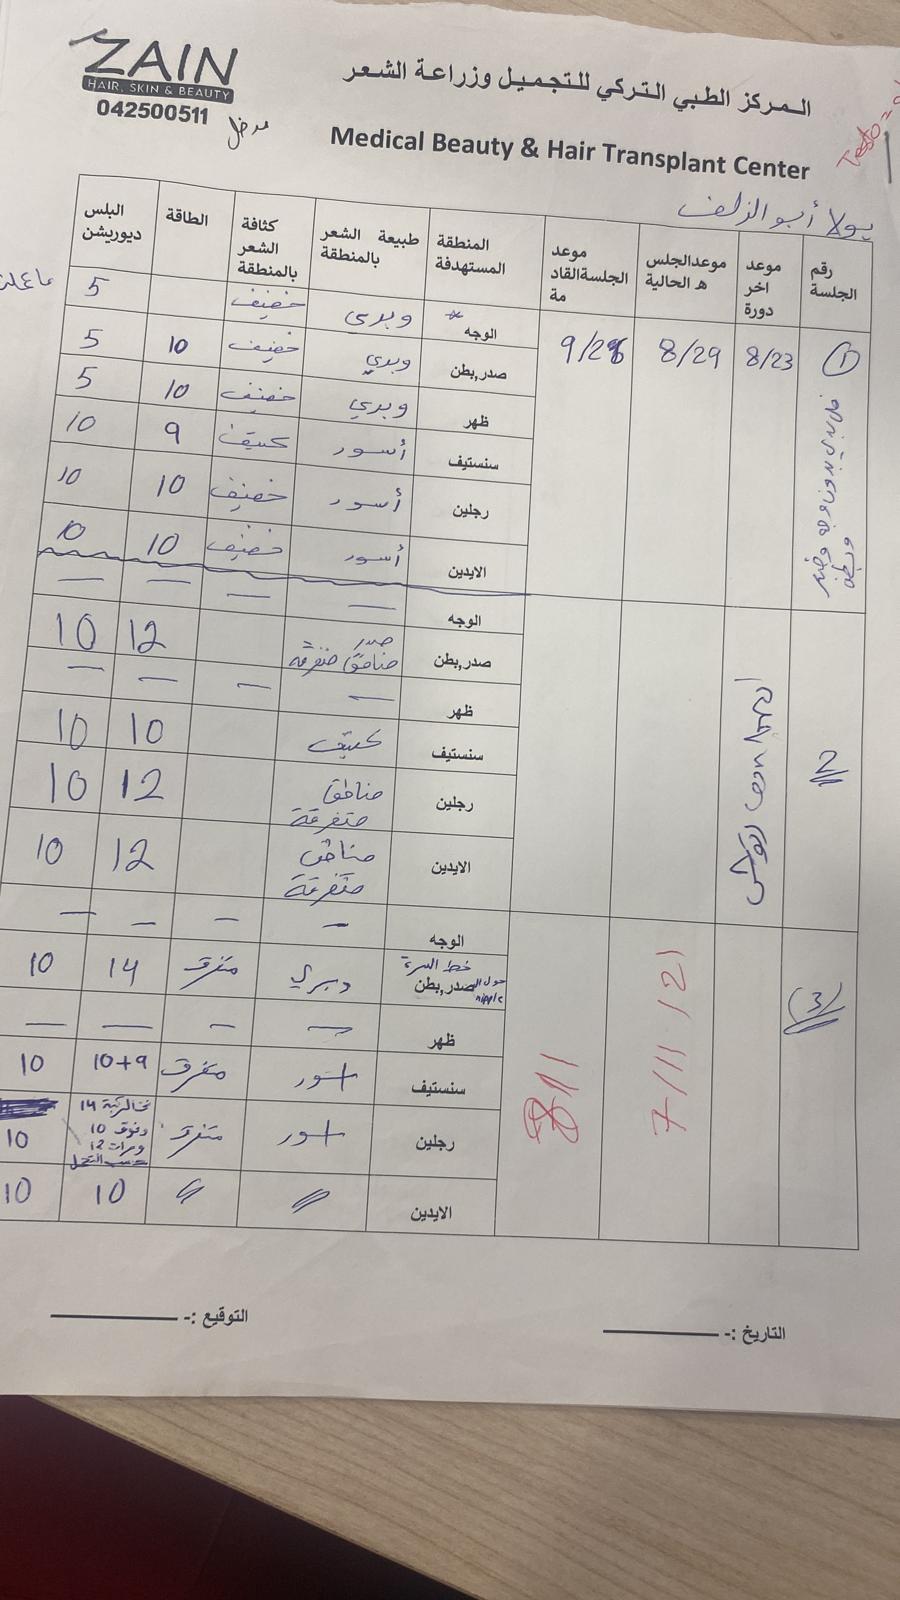 ZAIN
HAIR, SKIN & BEAUTY
042500511
المركز الطبي التركي للتجميل وزراعة الشعر
Medical Beauty & Hair Transplant Center
Testo =
رقم الجلسة | موعد اخر دورة | موعدالجلس ه الحالية | موعد الجلسةالقاد مة | المنطقة المستهدفة | طبيعة الشعر بالمنطقة | كثافة الشعر بالمنطقة | الطاقة | البلس ديوريشن
1 | 8/23 | 8/29 | الوجه | وبري | خفيف | 5
صدر,بطن | وبري | خفيف | 10 | 5
ظهر | وبري | خفيف | 10 | 5
سنستيف | أسود | كثيف | 9 | 10
رجلين | أسود | خفيف | 10 | 10
الايدين | أسود | خفيف | 10 | 10
2 | الوجه | — | — | — | —
صدر,بطن | صدر مناطق متفرقة | 12 | 10
ظهر | — | — | — | —
سنستيف | كثيف | 10 | 10
رجلين | مناطق متفرقة | 12 | 10
الايدين | مناطق متفرقة | 12 | 10
(3) | 7/11 | 8/1 | الوجه | — | — | — | —
خط السرة صدر,بطن حول ال nipple | وبري | متفرق | 14 | 10
ظهر | — | — | — | —
سنستيف | اسود | متفرق | 10+9 | 10
رجلين | اسود | متفرق | 14 | 10
وفوق 10
12
حسب التحمل
الايدين | // | // | 10 | 10
التاريخ :-
التوقيع :-